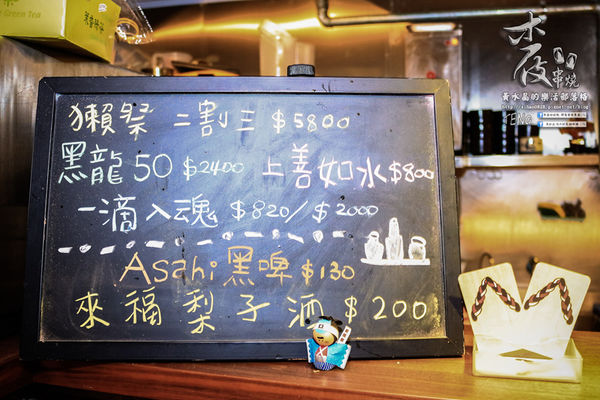 Green Tea
獺祭 二割三 $5800
黑龍50 $2400 上善如水 $800
一滴入魂 $820/$2000
Asahi 黑啤 $130
來福梨子酒 $200
木夜
串燒
黃水晶的樂活部落格